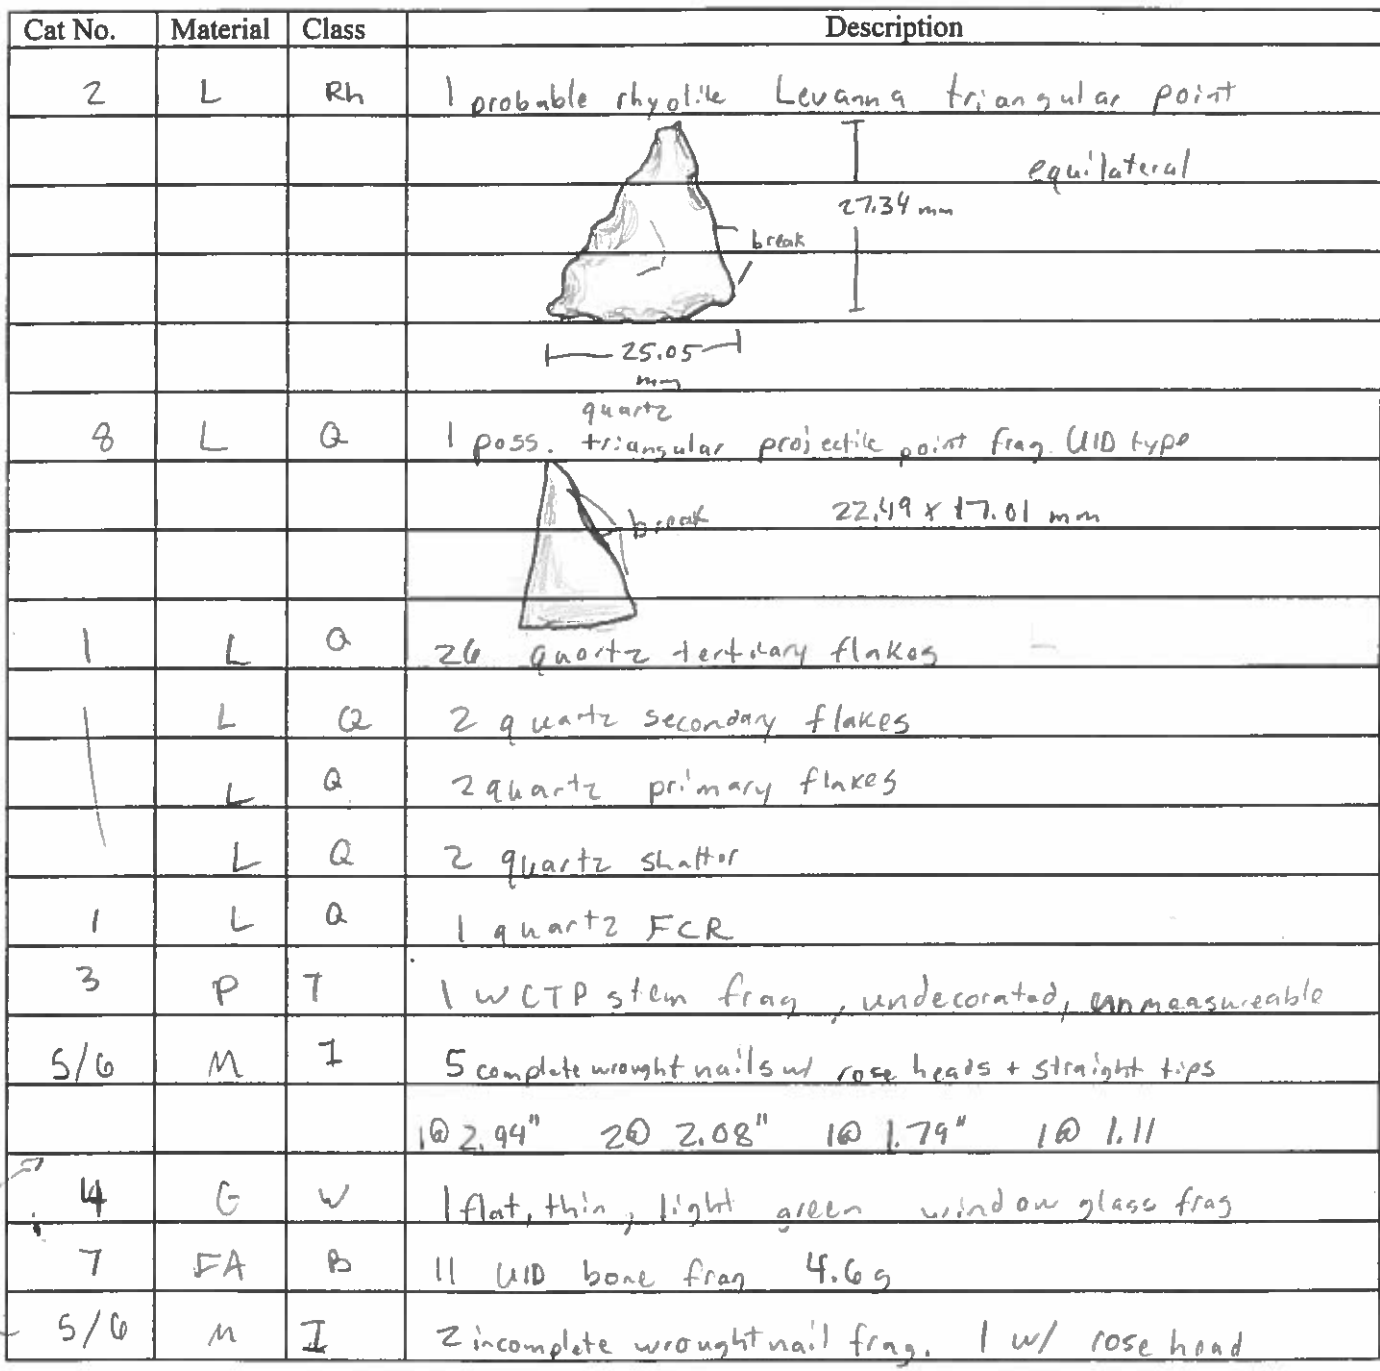 Cat No. Material Class Description
2 L Rh 1 probable rhyolite Levanna triangular point
equilateral
27.34 mm
break
25.05
mm
quartz
8 L Q 1 poss. triangular projectile point frag. UID type
break 22.49 x 17.01 mm
1 L Q 26 quartz tertiary flakes
L Q 2 quartz secondary flakes
L Q 2 quartz primary flakes
L Q 2 quartz shatter
1 L Q 1 quartz FCR
3 P T 1 WCTP stem frag, undecorated, unmeasureable
5/6 M I 5 complete wrought nails w/ rose heads + straight tips
1@ 2.94" 2@ 2.08" 1@ 1.79" 1@ 1.11
4 G W 1 flat, thin, light green window glass frag
7 FA B 11 UID bone frag 4.6g
5/6 M I 2 incomplete wrought nail frag. 1 w/ rose head